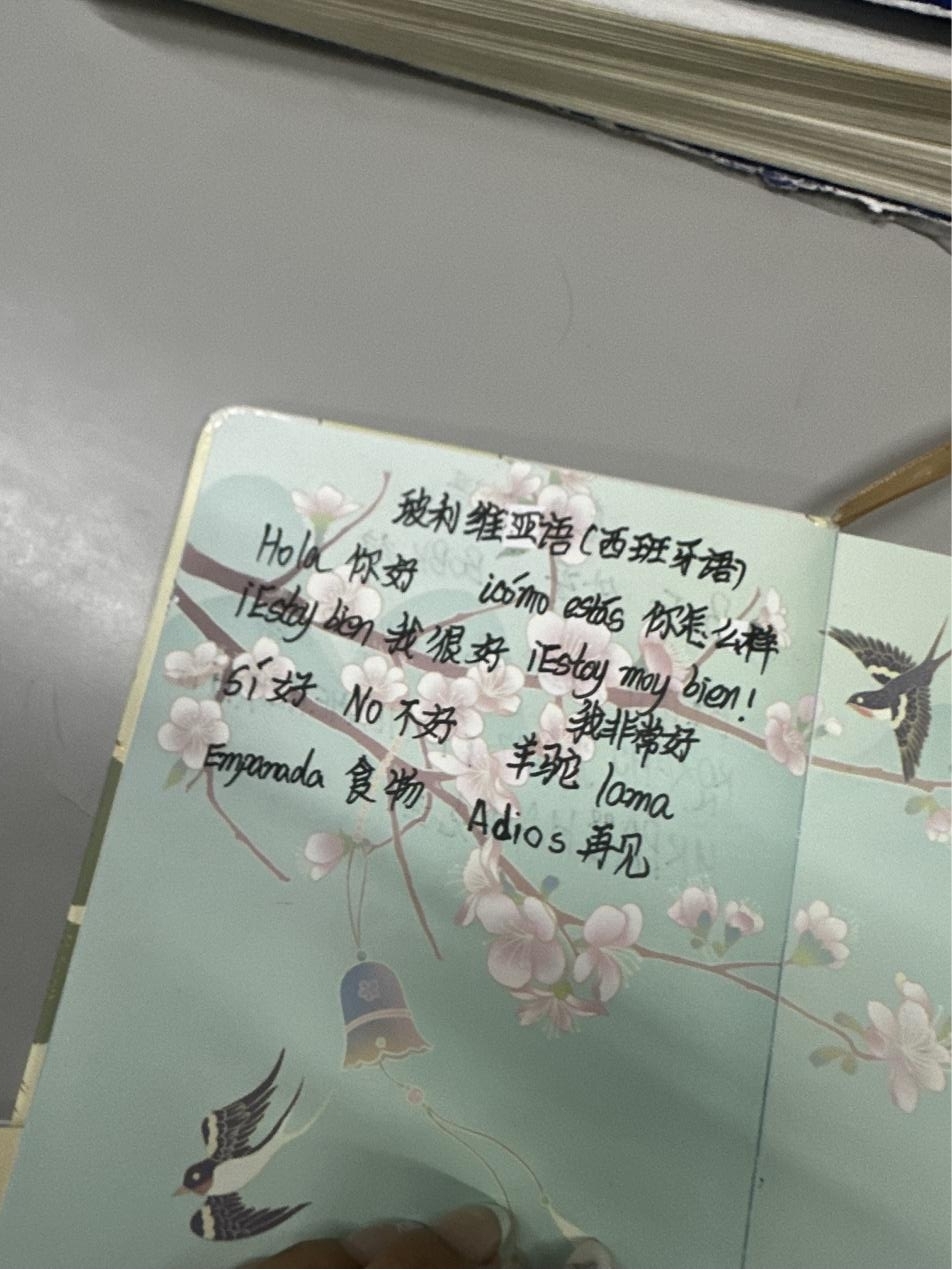 玻利维亚语(西班牙语)
Hola 你好 ¡cómo estás 你怎么样
¡Estoy bien 我很好 ¡Estoy moy bien!
我非常好
Sí 好 No 不好
羊驼 lama
Empanada 食物
Adios 再见